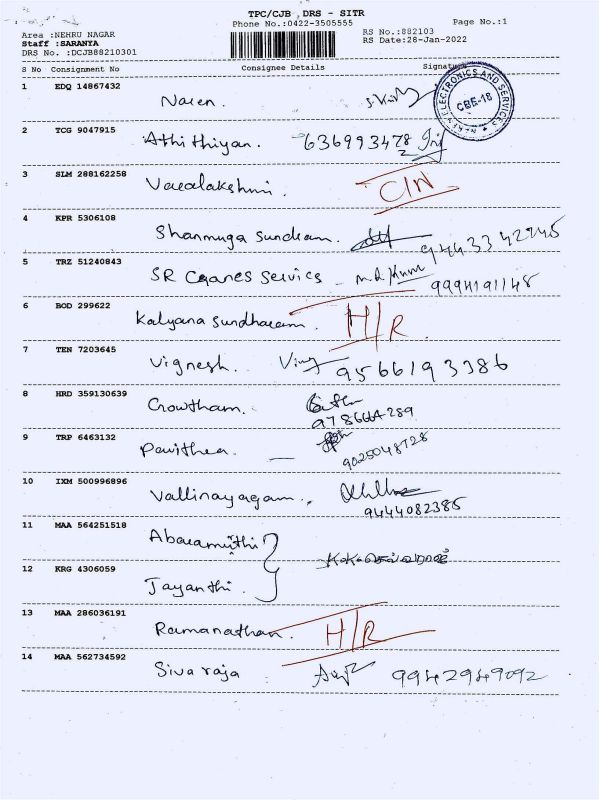 TPC/CJB, DRS - SITR
Phone No.:0422-3505555
Page No.:1
Area :NEHRU NAGAR
Staff :SARANYA
DRS No. :DCJB88210301
RS No.:882103
RS Date:28-Jan-2022
S No Consignment No Consignee Details Signature
ELECTRONICS AND SERVICES
CBE-18
1 EDQ 14867432
Naren.
2 TCG 9047915
Athithiyan. 6369934782
3 SLM 288162258
Varalakshmi. C/N
4 KPR 5306108
Shanmuga sundram. 9443342945
5 TRZ 51240843
SR Cranes Services - 9994191148
6 BOD 299622
Kalyana sundharam. H/R
7 TEN 7203645
Vignesh. 9566193386
8 HRD 359130639
Gowtham.
9 TRP 6463132
Pavithra. 9025048728
10 IXM 500996896
Vallinayagam. 9444082385
11 MAA 564251518
Abaramuthi
12 KRG 4306059
Jayanthi.
13 MAA 286036191
Ramanathan. H/R
14 MAA 562734592
Siva raja 9942949092